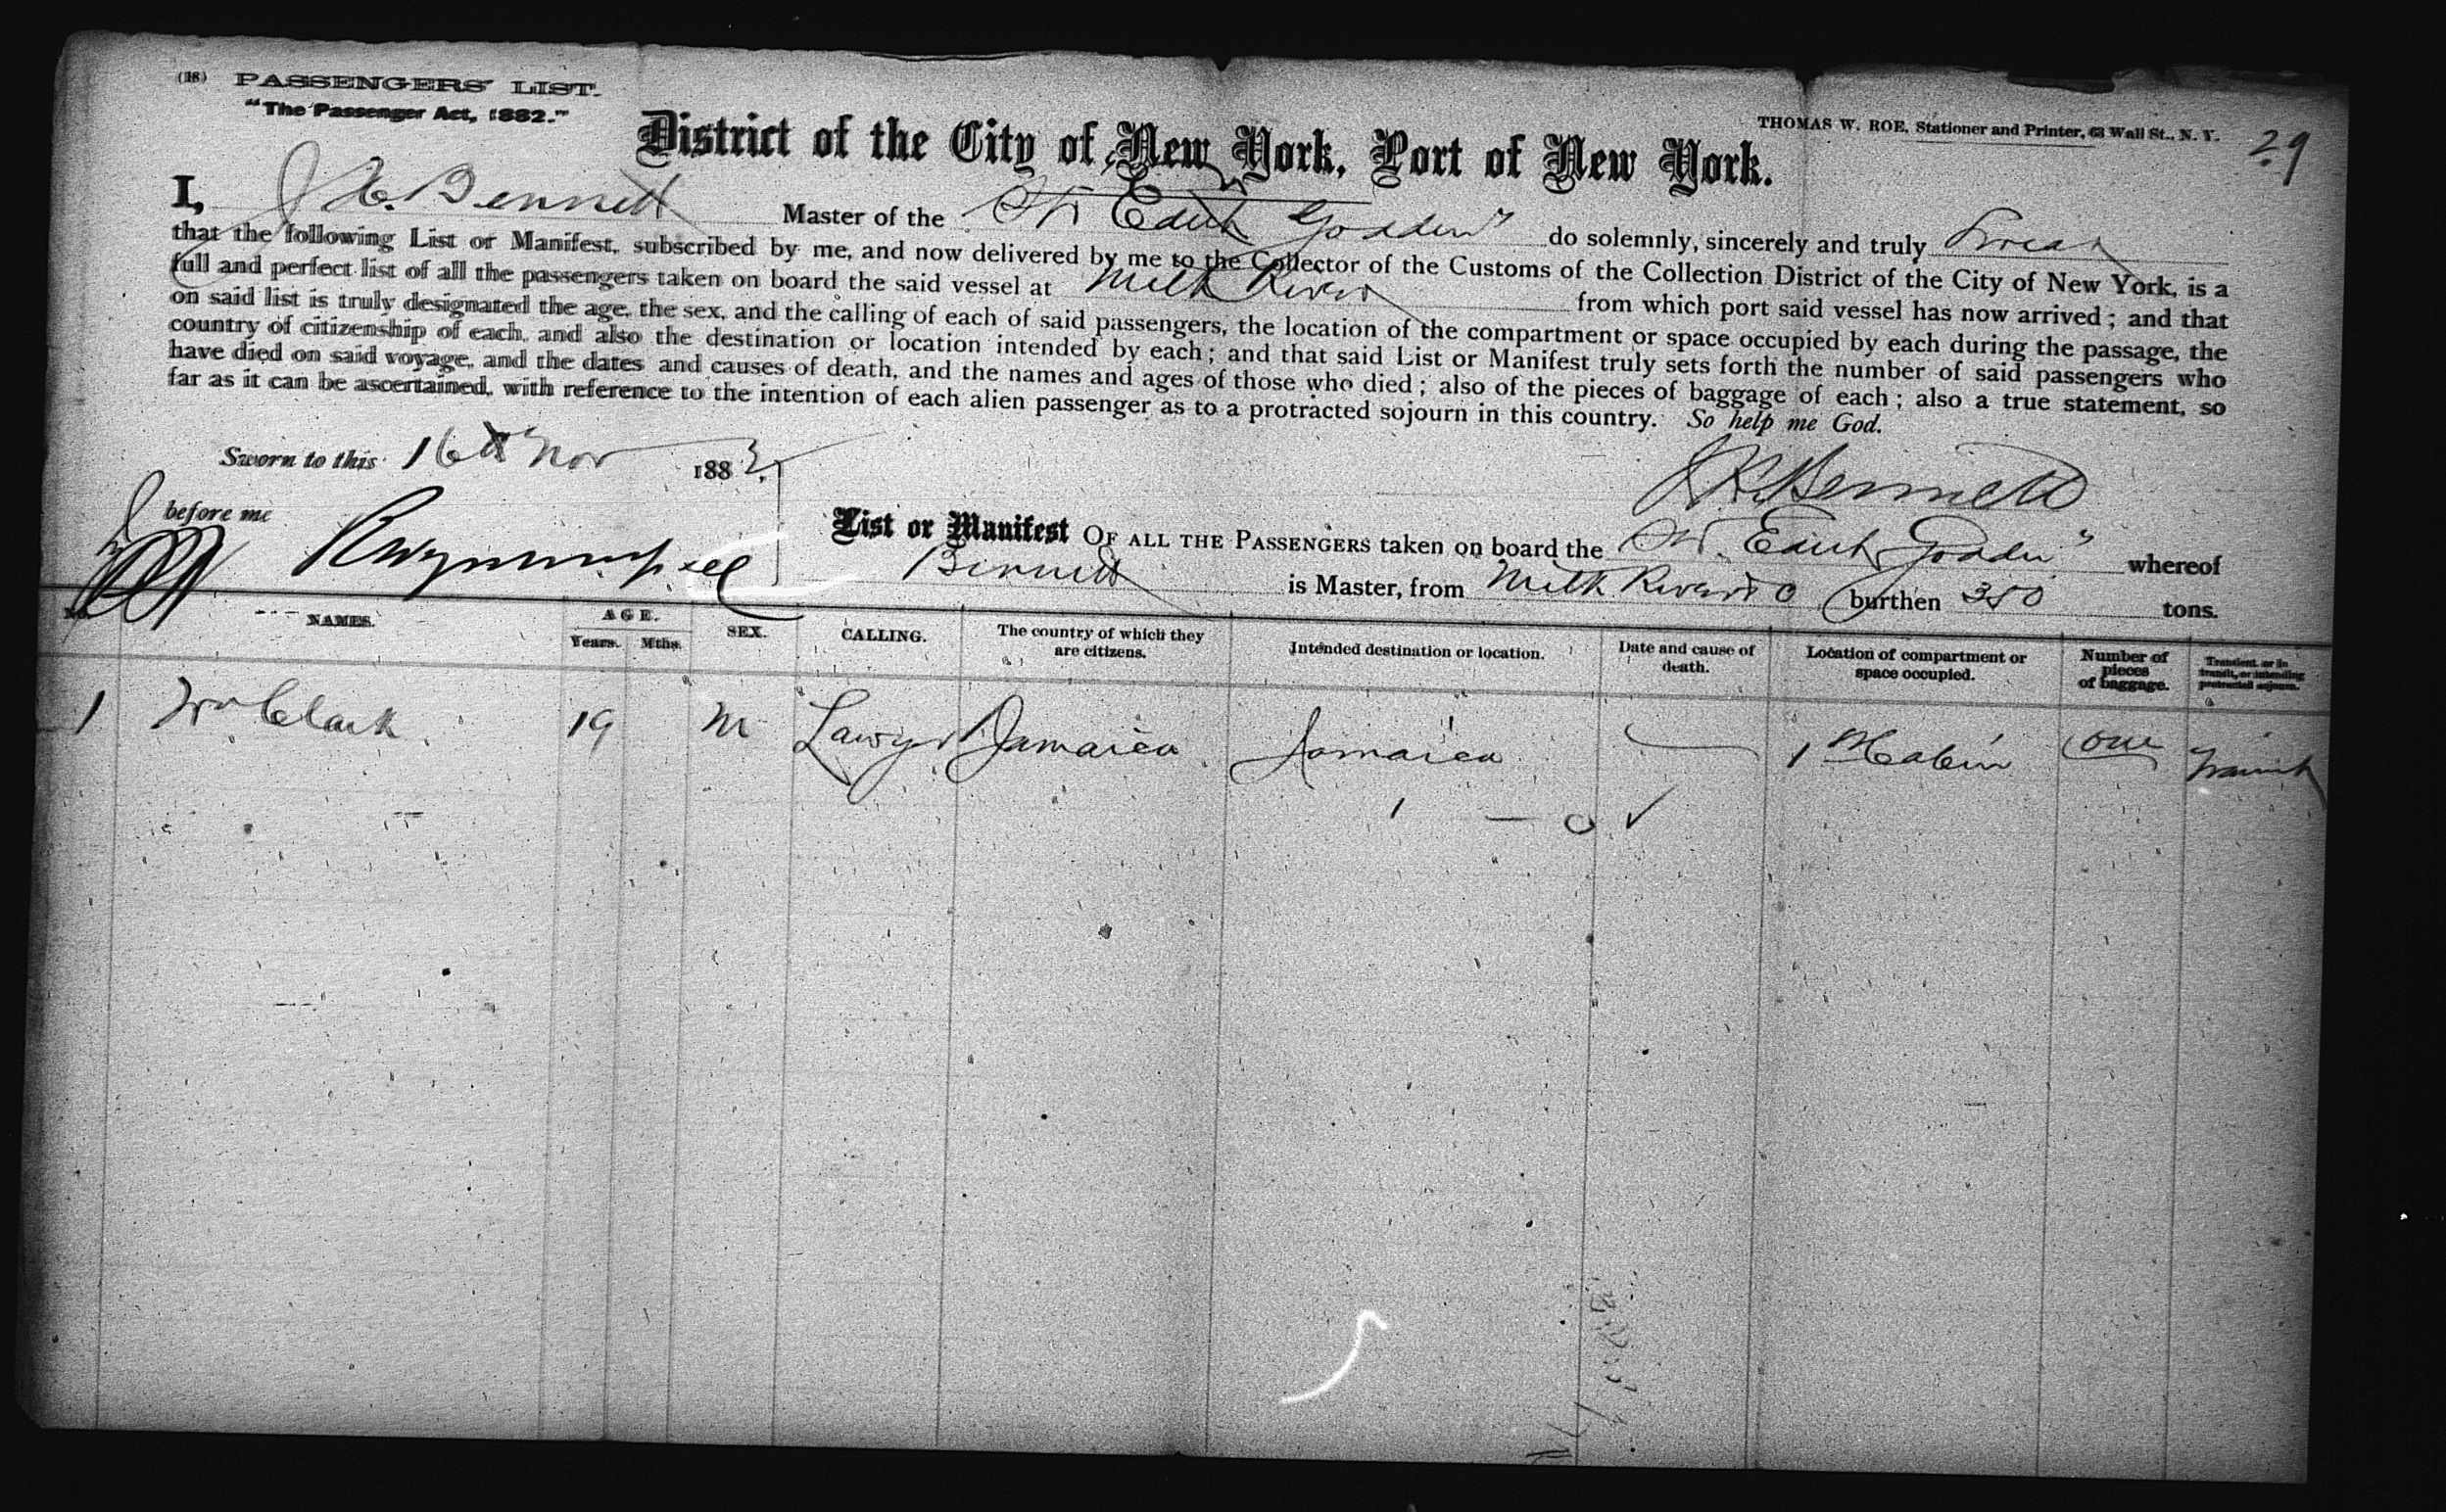 (18) PASSENGERS' LIST.
"The Passenger Act, 1882."
THOMAS W. ROE, Stationer and Printer, 63 Wall St., N. Y.
29
District of the City of New York, Port of New York.
I, Bennett Master of the Str Edith Godden" do solemnly, sincerely and truly Swear
that the following List or Manifest, subscribed by me, and now delivered by me to the Collector of the Customs of the Collection District of the City of New York, is a
full and perfect list of all the passengers taken on board the said vessel at Milk River from which port said vessel has now arrived; and that
on said list is truly designated the age, the sex, and the calling of each of said passengers, the location of the compartment or space occupied by each during the passage, the
country of citizenship of each, and also the destination or location intended by each; and that said List or Manifest truly sets forth the number of said passengers who
have died on said voyage, and the dates and causes of death, and the names and ages of those who died; also of the pieces of baggage of each; also a true statement, so
far as it can be ascertained, with reference to the intention of each alien passenger as to a protracted sojourn in this country. So help me God.
Sworn to this 16th Nov 1883
Bennett
before me
List or Manifest OF ALL THE PASSENGERS taken on board the Str. Edith Godden" whereof
Bennett is Master, from Milk River burthen 350 tons.
No. NAMES. AGE. Years. Mths. SEX. CALLING. The country of which they are citizens. Intended destination or location. Date and cause of death. Location of compartment or space occupied. Number of pieces of baggage. Transient, or in transit, or intending protracted sojourn.
1 Wm Clark 19 M Lawyer Jamaica Jamaica 1st Cabin One Transit
1 — 0 ✓